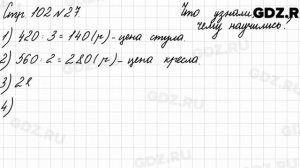 Стр. 102 № 27.
Что узнали,
чему научились?
GDZ.RU
1) 420 : 3 = 140 (р.) - цена стула.
2) 560 : 2 = 280 (р.) - цена кресла.
3) 28
4)